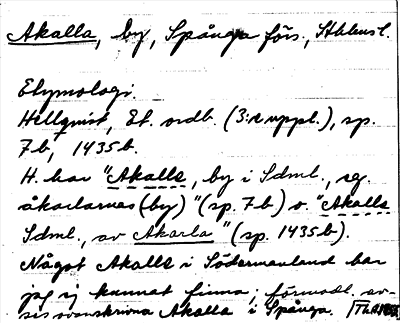 Akalla, by, Spånga förs., Sthlmsl.
Etymologi.
Hellquist, Et. ordb. (3:e uppl.), sp.
7b, 1435b.
H. har "Akalla, by i Sdml., eg.
åkarlarnas (by)" (sp. 7b) o. "Akalla
Sdml., av Akarla" (sp. 1435b).
Något Akalla i Södermanland har
jag ej kunnat finna; förmodl. av-
ses ovanskrivna Akalla i Spånga.